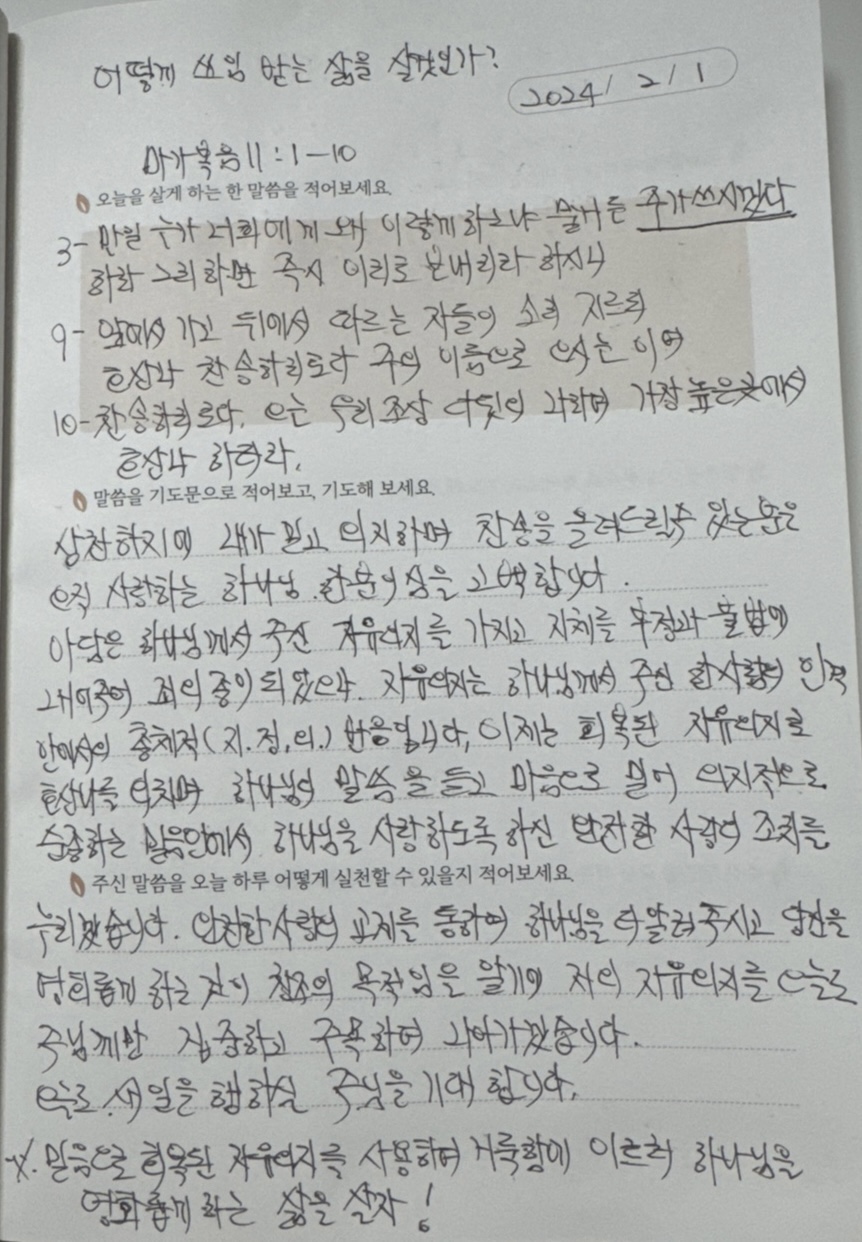 어떻게 쓰임 받는 삶을 살것인가?
2024/ 2/ 1
마가복음 11:1-10
오늘을 살게 하는 한 말씀을 적어보세요.
3- 만일 누가 너희에게 왜 이렇게 하느냐 묻거든 주가 쓰시겠다
하라 그리하면 즉시 이리로 보내리라 하시니
9- 앞에서 가고 뒤에서 따르는 자들이 소리 지르되
호산나 찬송하리로다 주의 이름으로 오시는 이여
10- 찬송하리로다. 오는 우리 조상 다윗의 나라여 가장 높은곳에서
호산나 하더라.
말씀을 기도문으로 적어보고, 기도해 보세요.
삼찬하지에 내가 믿고 의지하며 찬송을 올려드릴수 있는분은
오직 사랑하는 하나님 한분이심을 고백합니다.
아담은 하나님께서 주신 자유의지를 가지고 자체를 부정과 불법에
내어주어 죄의 종이 되었으나. 자유의지는 하나님께서 주신 한사람의 인격
안에서의 총체적(지.정.의.) 반응입니다. 이제는 회복된 자유의지로
호산나를 외치며 하나님의 말씀을 듣고 마음으로 믿어 의지적으로
순종하는 믿음안에서 하나님을 사랑하도록 하신 완전한 사랑의 조치를
주신 말씀을 오늘 하루 어떻게 실천할 수 있을지 적어보세요.
누리겠습니다. 완전한 사랑의 교제를 통하여 하나님을 더 알려주시고 당신을
영화롭게 하는 것이 창조의 목적임을 알기에 저의 자유의지를 오늘도
주님께만 집중하고 주목하여 나아가겠습니다.
오늘도 새일을 행하실 주님을 기대 합니다.
※. 믿음으로 회복된 자유의지를 사용하여 거룩함에 이르러 하나님을
영화롭게 하는 삶을 살자!